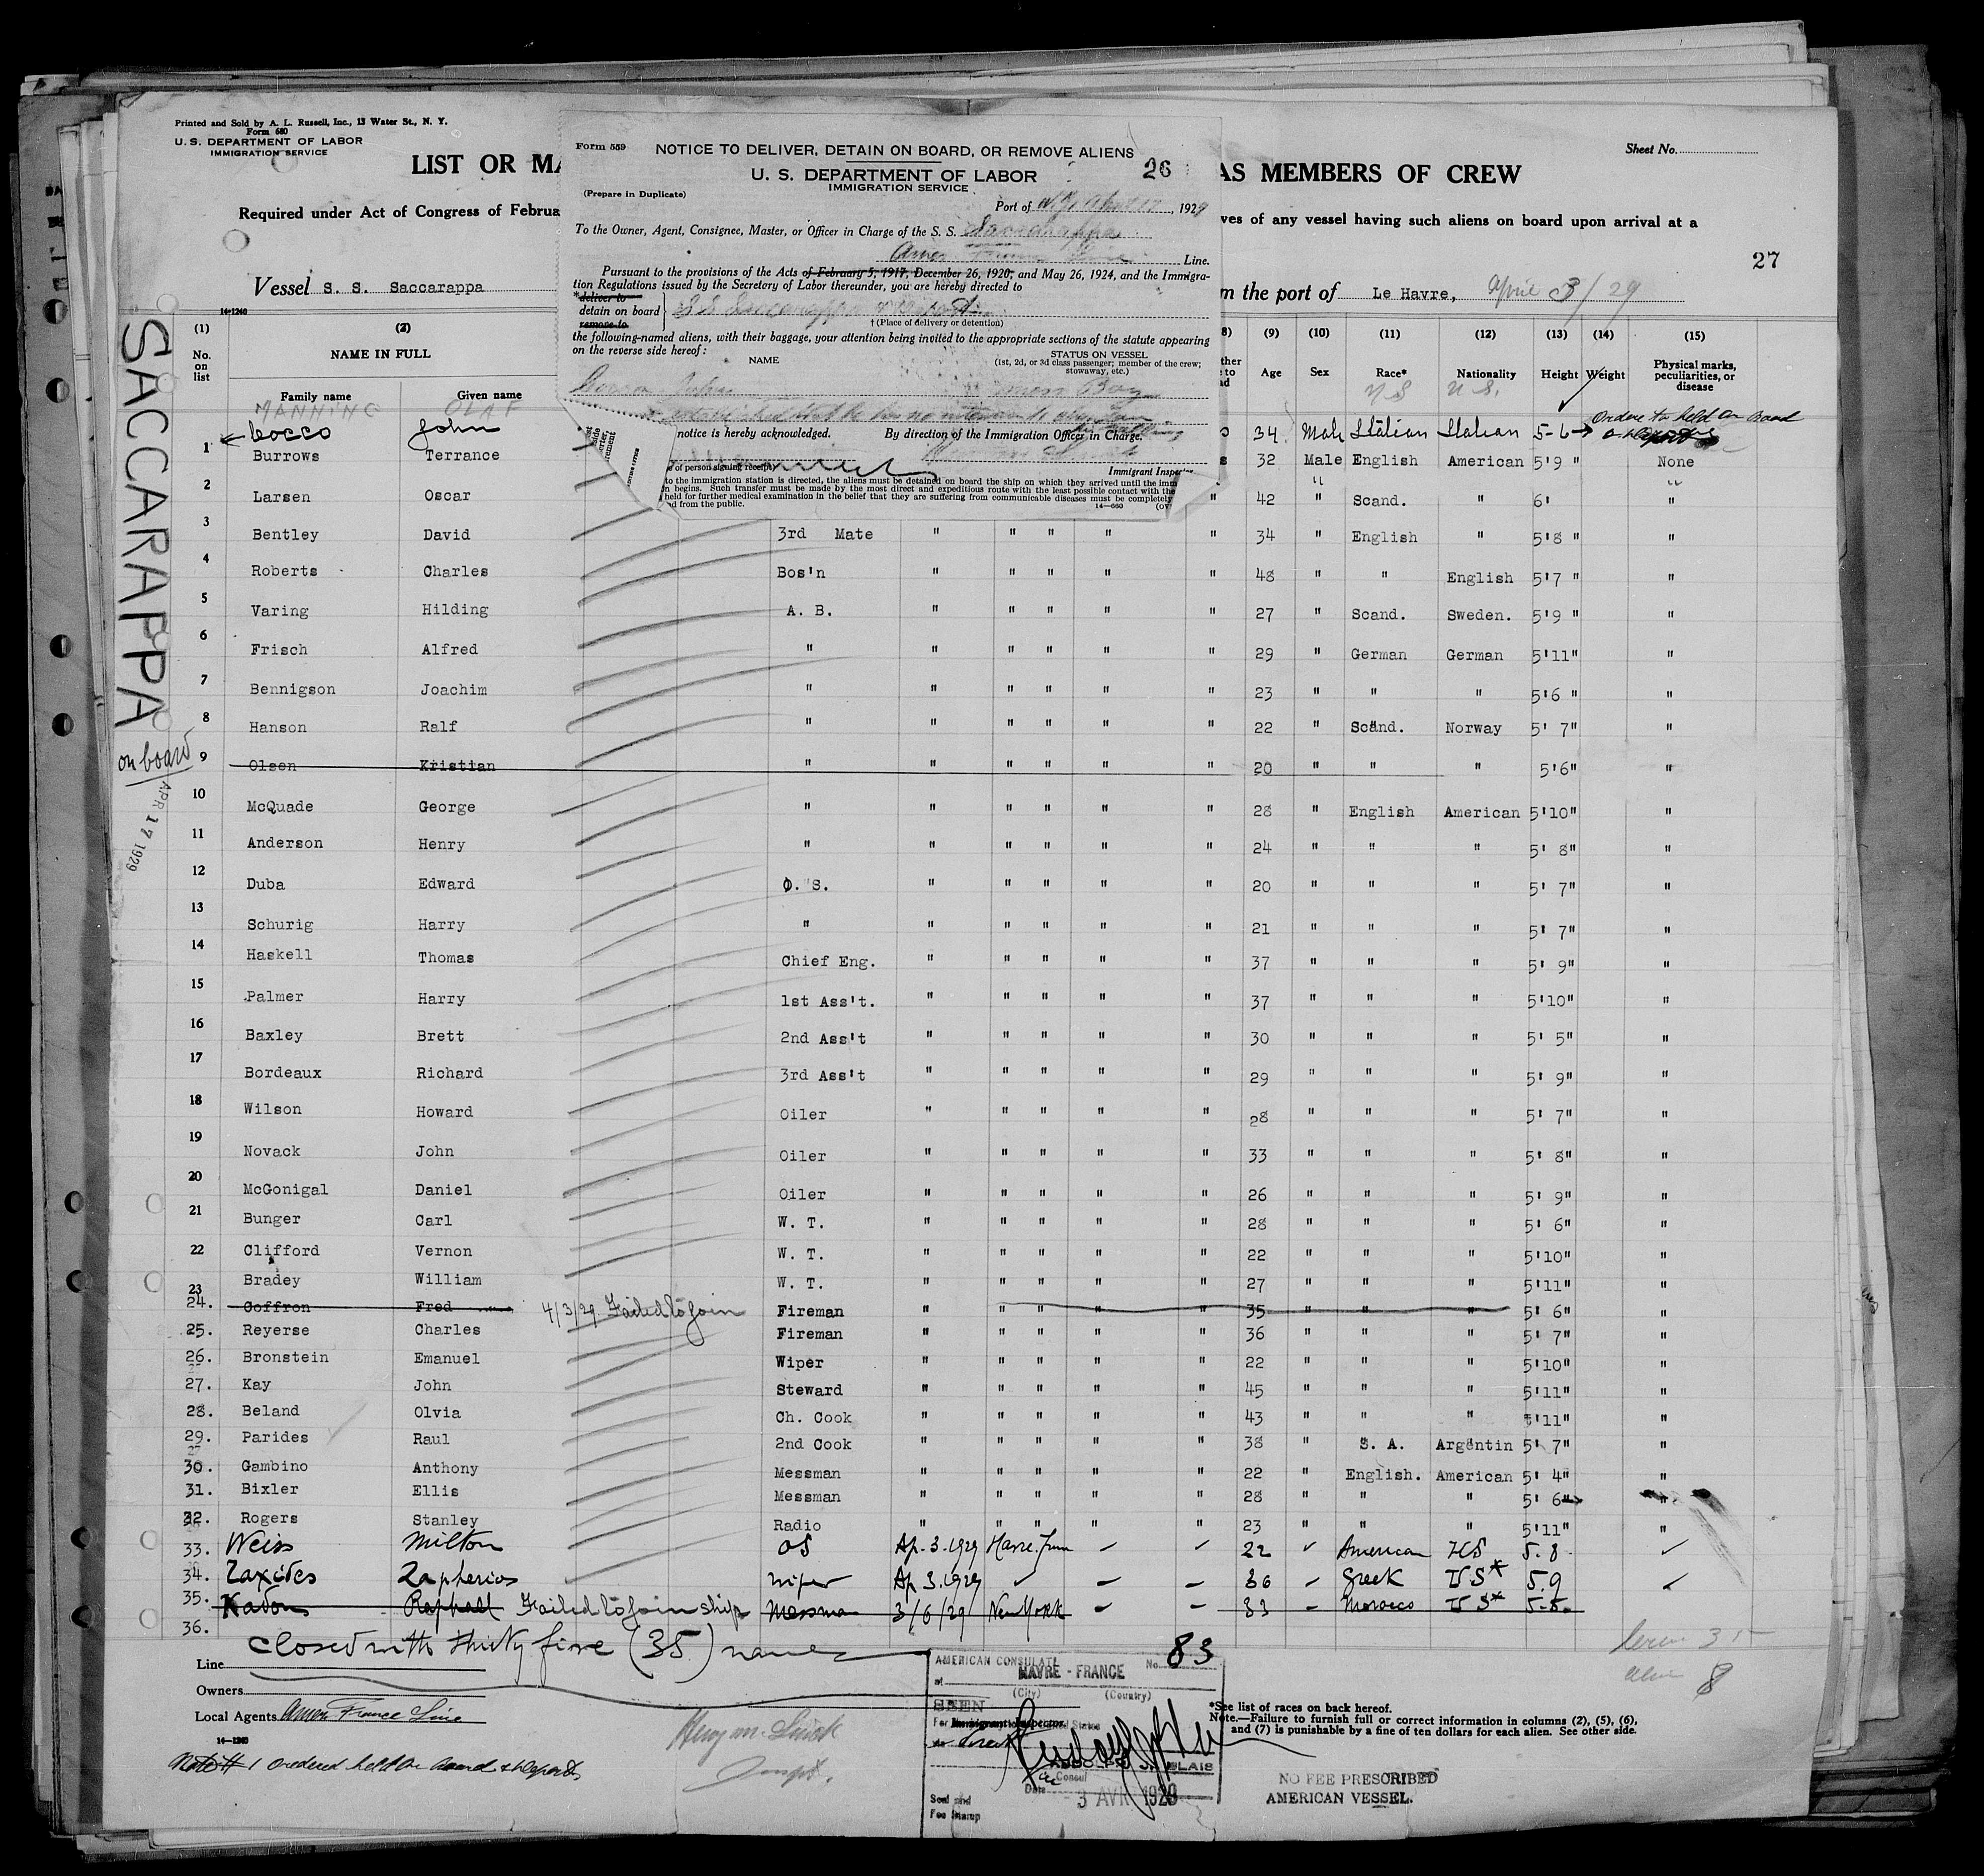 Printed and Sold by A. L. Russell, Inc., 13 Water St., N. Y.
Form 680
U. S. DEPARTMENT OF LABOR
IMMIGRATION SERVICE
LIST OR MA
AS MEMBERS OF CREW
Sheet No.
Required under Act of Congress of Februa
ves of any vessel having such aliens on board upon arrival at a
27
Vessel S. S. Saccarappa
m the port of Le Havre, April 3/29
Form 559
NOTICE TO DELIVER, DETAIN ON BOARD, OR REMOVE ALIENS
26
U. S. DEPARTMENT OF LABOR
IMMIGRATION SERVICE
(Prepare in Duplicate)
Port of N.Y. April 17, 1929
To the Owner, Agent, Consignee, Master, or Officer in Charge of the S. S. Saccarappa
Amer France Line Line.
Pursuant to the provisions of the Acts of February 5, 1917, December 26, 1920, and May 26, 1924, and the Immigra-
tion Regulations issued by the Secretary of Labor thereunder, you are hereby directed to
*deliver to
detain on board
remove to
SS Saccarappa
† (Place of delivery or detention)
the following-named aliens, with their baggage, your attention being invited to the appropriate sections of the statute appearing
on the reverse side hereof:
NAME
STATUS ON VESSEL
(1st, 2d, or 3d class passenger; member of the crew;
stowaway, etc.)
John mess Boy
notice is hereby acknowledged. By direction of the Immigration Officer in Charge.
e of person signing receipt)
Immigrant Inspector
to the immigration station is directed, the aliens must be detained on board the ship on which they arrived until the imm
n begins. Such transfer must be made by the most direct and expeditious route with the least possible contact with the
held for further medical examination in the belief that they are suffering from communicable diseases must be completely
d from the public.
14—660 (ov
14-1240
SACCARAPPA
on board
APR 17 1929
(1) (2) 8) (9) (10) (11) (12) (13) (14) (15)
No. on list NAME IN FULL ther e to ad Age Sex Race* Nationality Height Weight Physical marks, peculiarities, or disease
Family name Given name
MANNING OLAF US U.S.
Cocco John o 34 Male Italian Italian 5-6 Ordered to held on Board
1 Burrows Terrance s 32 Male English American 5'9 " None
2 Larsen Oscar " 42 " Scand. " 6' "
3 Bentley David 3rd Mate " " " " " 34 " English " 5'8 " "
4 Roberts Charles Bos'n " " " " " 48 " " English 5'7 " "
5 Varing Hilding A. B. " " " " " 27 " Scand. Sweden. 5'9 " "
6 Frisch Alfred " " " " " " 29 " German German 5'11" "
7 Bennigson Joachim " " " " " " 23 " " " 5'6 " "
8 Hanson Ralf " " " " " " 22 " Scand. Norway 5' 7" "
9 Olsen Kristian " " " " " " 20 " " " 5'6" "
10 McQuade George " " " " " " 28 " English American 5'10" "
11 Anderson Henry " " " " " " 24 " " " 5' 8" "
12 Duba Edward O. S. " " " " " 20 " " " 5' 7" "
13 Schurig Harry " " " " " " 21 " " " 5' 7" "
14 Haskell Thomas Chief Eng. " " " " " 37 " " " 5' 9" "
15 Palmer Harry 1st Ass't. " " " " " 37 " " " 5'10" "
16 Baxley Brett 2nd Ass't " " " " " 30 " " " 5' 5" "
17 Bordeaux Richard 3rd Ass't " " " " " 29 " " " 5' 9" "
18 Wilson Howard Oiler " " " " " 28 " " " 5' 7" "
19 Novack John Oiler " " " " " 33 " " " 5' 8" "
20 McGonigal Daniel Oiler " " " " " 26 " " " 5' 9" "
21 Bunger Carl W. T. " " " " " 28 " " " 5' 6" "
22 Clifford Vernon W. T. " " " " " 22 " " " 5'10" "
23 Bradey William W. T. " " " " " 27 " " " 5'11" "
24. Coffron Fred 4/3/29 Failed to join Fireman " " " " " 35 " " " 5' 6" "
25. Reyerse Charles Fireman " " " " " 36 " " " 5' 7" "
26. Bronstein Emanuel Wiper " " " " " 22 " " " 5'10" "
27. Kay John Steward " " " " " 45 " " " 5'11" "
28. Beland Olvia Ch. Cook " " " " " 43 " " " 5'11" "
29. Parides Raul 2nd Cook " " " " " 38 " S. A. Argentin 5' 7" "
30. Gambino Anthony Messman " " " " " 22 " English. American 5' 4" "
31. Bixler Ellis Messman " " " " " 28 " " " 5' 6" "
32. Rogers Stanley Radio " " " " " 23 " " " 5'11" "
33. Weiss Milton OS Ap. 3. 1929 Havre. Fran 22 American US 5.8
34. Zaxides Zapherios wiper Ap 3. 1929 36 Greek US* 5.9
35. Kadon Raphael Failed to join ship Messman 3/6/29 New York 33 Morocco US* 5-5
36.
Closed with thirty five (35) names
Crew 35
Alien 8
Line
Owners
Local Agents Amer France Line
14—1240
Note # 1 ordered held on board & deported
AMERICAN CONSULATE
at HAVRE - FRANCE No. 83
(City) (Country)
SEEN
ADOLPHE J. BLAIS
Consul
Date - 3 AVR 1929
Seal and
Fee Stamp
*See list of races on back hereof.
Note.—Failure to furnish full or correct information in columns (2), (5), (6),
and (7) is punishable by a fine of ten dollars for each alien. See other side.
NO FEE PRESCRIBED
AMERICAN VESSEL.